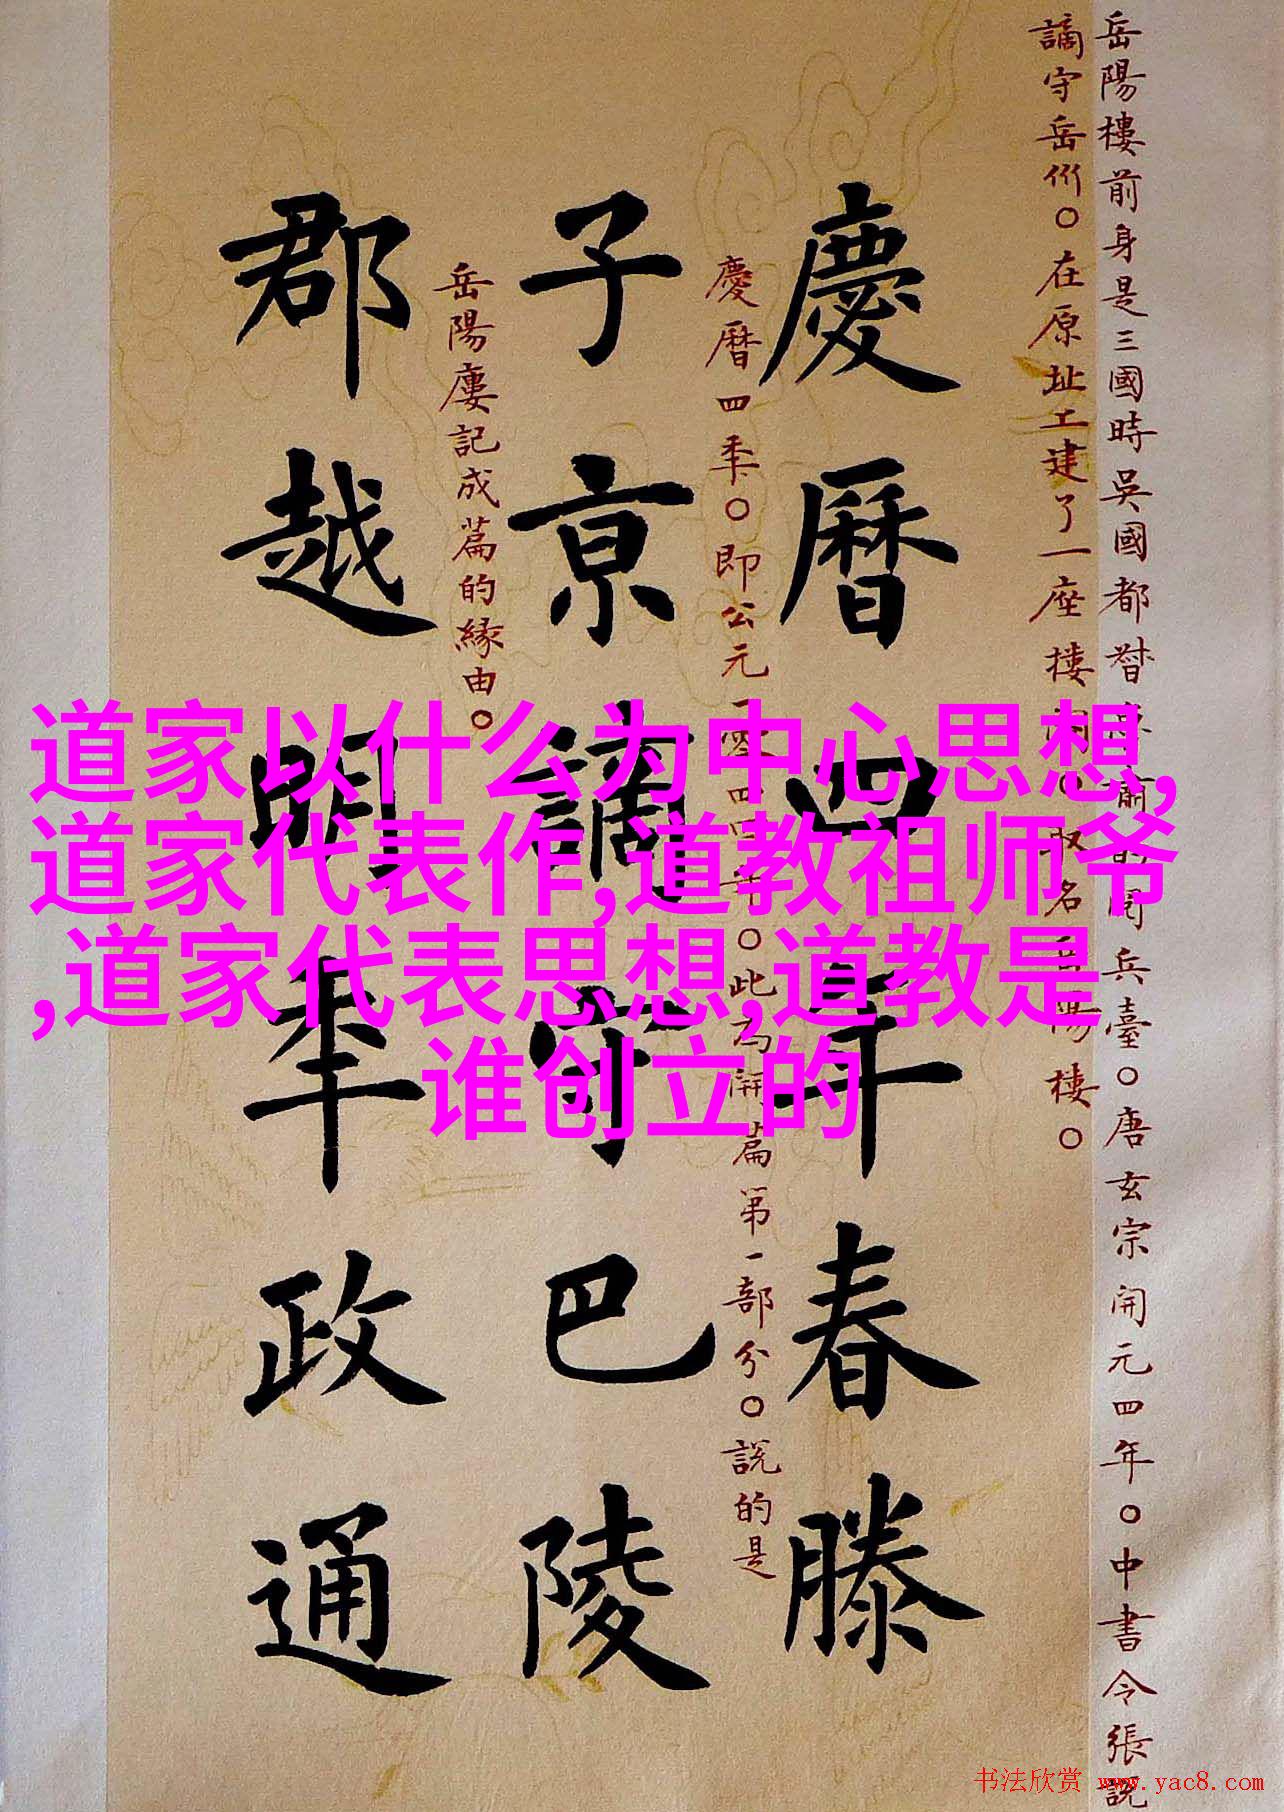 岳陽樓前身是三國時吳國都督魯肅的閱兵臺○唐玄宗開元四年○中書令張説
謫守岳州○在原址工建了一座樓閣○取名岳陽樓○
慶曆四年春滕
慶曆四年○即公元一零四四年○此為開篇第一部分○説的是
子京謫守巴陵
岳陽廔記成篇的緣由○
郡越明年政通
道家以什么为中心思想,
道家代表作,道教祖师爷
,道家代表思想,道教是
谁创立的
书法欣赏 www.yac8.com